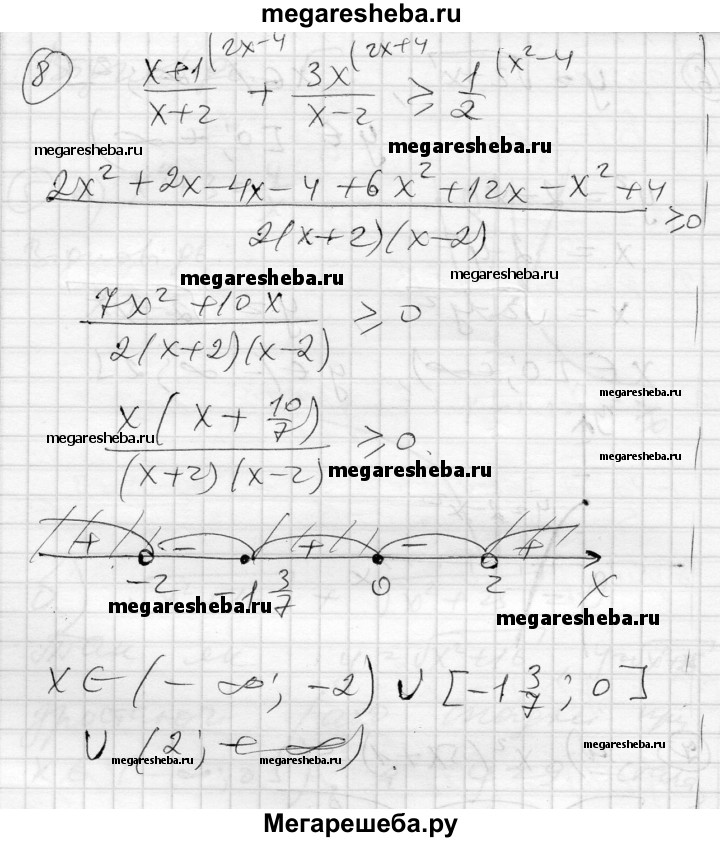 megaresheba.ru
8
(2x-4 (2x+4 (x²-4
(x+1)/(x+2) + 3x/(x-2) ≥ 1/2
megaresheba.ru megaresheba.ru
(2x² + 2x - 4x - 4 + 6x² + 12x - x² + 4)/(2(x+2)(x-2)) ≥ 0
megaresheba.ru megaresheba.ru
(7x² + 10x)/(2(x+2)(x-2)) ≥ 0
megaresheba.ru
(x(x + 10/7))/((x+2)(x-2)) ≥ 0.
megaresheba.ru megaresheba.ru megaresheba.ru
+ - + - +
-2 -1 3/7 0 2 x
megaresheba.ru megaresheba.ru
x ∈ (-∞; -2) ∪ [-1 3/7; 0]
∪ (2; +∞)
megaresheba.ru megaresheba.ru megaresheba.ru
Мегарешеба.ру